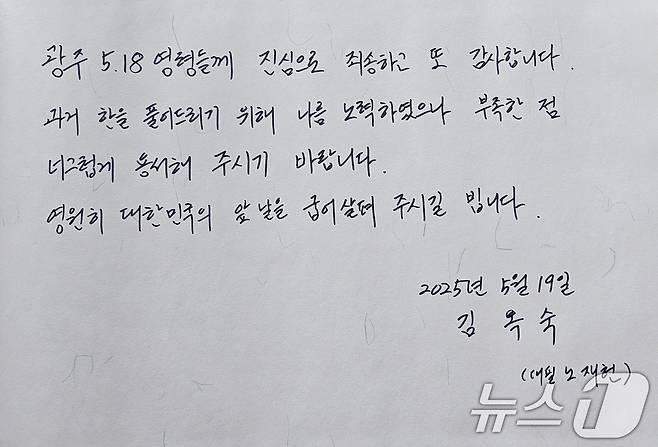 광주 5.18 영령들께 진심으로 죄송하고 또 감사합니다.
과거 한을 풀어드리기 위해 나름 노력하였으나 부족한 점
너그럽게 용서해 주시기 바랍니다.
영원히 대한민국의 앞날을 굽어살펴 주시길 빕니다.
2025년 5월 19일
김옥숙
(대필 노재헌)
뉴스1